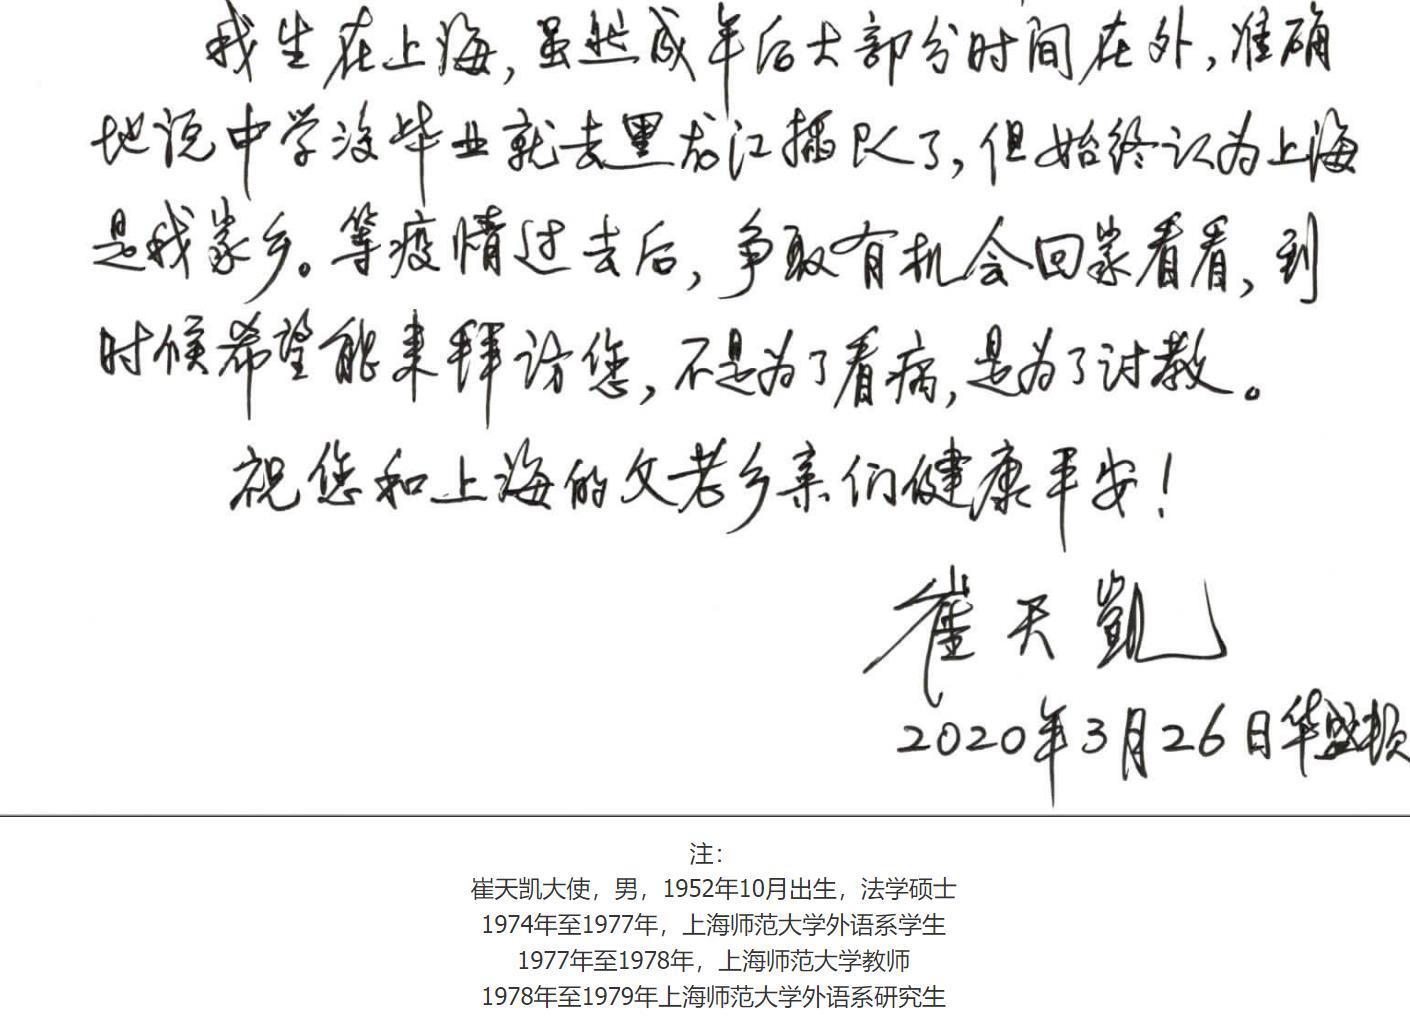 我生在上海，虽然成年后大部分时间在外，准确
地说中学没毕业就去黑龙江插队了，但始终认为上海
是我家乡。等疫情过去后，争取有机会回家看看，到
时候希望能来拜访您，不是为了看病，是为了讨教。
祝您和上海的父老乡亲们健康平安！
崔天凯
2020年3月26日华盛顿
注：
崔天凯大使，男，1952年10月出生，法学硕士
1974年至1977年，上海师范大学外语系学生
1977年至1978年，上海师范大学教师
1978年至1979年上海师范大学外语系研究生